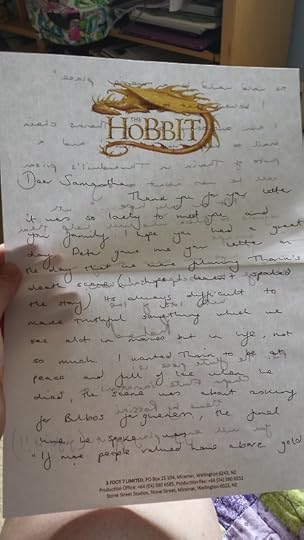 THE
HOBBIT
Dear Samantha
Thank you for your letter
it was so lovely to meet you and
your family. I hope you had a great
day. Peter gave me your letter on
the day that we were filming Thorin's
death scene (I hope I haven't spoiled
the story) Its always difficult to
make truthful something which we
see alot in movies but in life, not
so much. I wanted Thorin to be at
peace and full of love when he
died, the scene was about asking
for Bilbos forgiveness, the final
line, he spoke was
"If more people valued home above gold
3 FOOT 7 LIMITED, PO Box 15 104, Miramar, Wellington 6243, NZ
Production Office: +64 (04) 380 Production Fax: +64 (04) 380
Stone Street Studios, Stone Street, Miramar, Wellington 6022, NZ